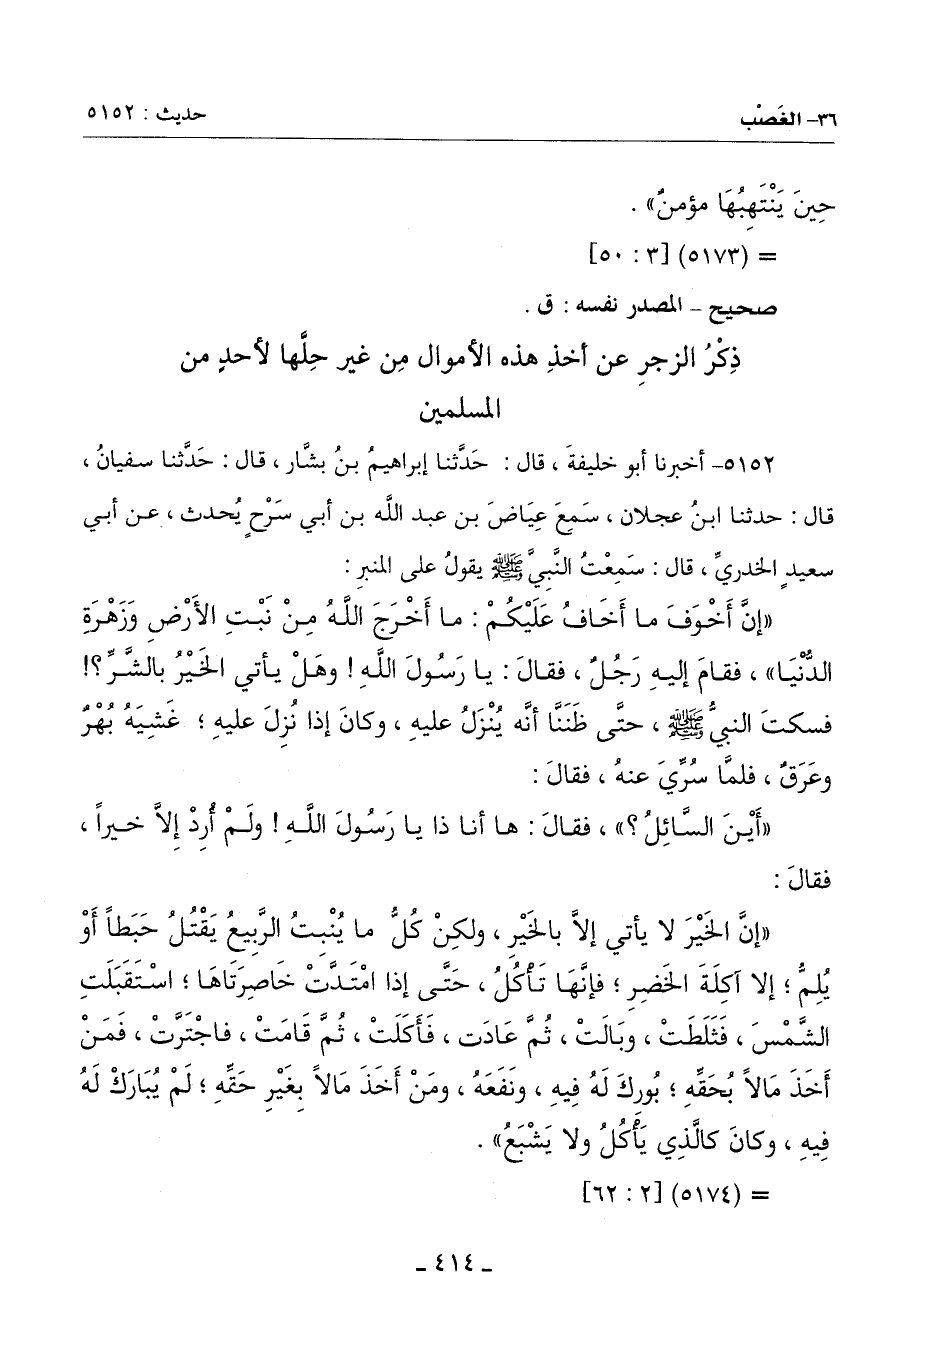 ٣٦- الغَصْب
حديث : ٥١٥٢
حِينَ يَنْتَهِبُهَا مؤمنٌ» .
= (٥١٧٣) [٣ : ٥٠]
صحيح - المصدر نفسه : ق .
ذِكْرُ الزجرِ عن أخذِ هذه الأموال مِن غير حِلَّها لأحدٍ من
المسلمين
٥١٥٢- أخبرنا أبو خليفةَ ، قال : حَدَّثنا إبراهيمُ بنُ بشَّار ، قال : حَدَّثنا سفيانُ ،
قال : حدثنا ابنُ عجلان ، سَمِعَ عِيَاضَ بن عبد اللَّه بن أبي سَرْحٍ يُحدث ، عن أبي
سعيدٍ الخدريِّ ، قال : سَمِعْتُ النَّبيَّ ﷺ يقولُ على المنبرِ :
«إنَّ أَخْوَفَ ما أَخَافُ عَلَيْكُمْ : ما أَخْرَجَ اللَّهُ مِنْ نَبْتِ الأَرْضِ وَزَهْرَةِ
الدُّنْيَا» ، فقامَ إليهِ رَجُلٌ ، فقالَ : يا رَسُولَ اللَّهِ ! وهَلْ يأتي الخَيْرُ بالشَّرِّ ؟!
فسكتَ النبيُّ ﷺ ، حتَّى ظَنَنَّا أنَّه يُنْزَلُ عليهِ ، وكانَ إذا نُزِلَ عليهِ ؛ غَشِيَهُ بُهْرٌ
وعَرَقٌ ، فلمَّا سُرِّيَ عنهُ ، فقالَ :
«أَيْنَ السَّائِلُ ؟» ، فقالَ : ها أنا ذا يا رَسُولَ اللَّهِ ! ولَمْ أُرِدْ إلاَّ خيراً ،
فقالَ :
«إنَّ الخَيْرَ لا يأتي إلاَّ بالخَيْرِ ، ولكِنْ كُلُّ ما يُنْبِتُ الرَّبيعُ يَقْتُلُ حَبَطاً أَوْ
يُلِمُّ ؛ إلا آكِلَةَ الخَضِرِ ؛ فإنَّهَا تَأْكُلُ ، حَتَّى إذا امْتَدَّتْ خَاصِرَتَاهَا ؛ اسْتَقبَلَتِ
الشَّمْسَ ، فَثَلَطَتْ ، وبَالَتْ ، ثُمَّ عَادَت ، فَأَكَلَتْ ، ثُمَّ قَامَتْ ، فاجْتَرَّت ، فَمَنْ
أَخَذَ مَالاً بُحَقِّهِ ؛ بُورِكَ لَهُ فِيهِ ، ونَفَعَهُ ، ومَنْ أَخَذَ مَالاً بِغَيْرِ حَقِّهِ ؛ لَمْ يُبَارَكْ لَهُ
فِيهِ ، وكانَ كالَّذِي يَأْكُلُ ولا يَشْبَعُ» .
= (٥١٧٤) [٢ : ٦٢]
- ٤١٤ -